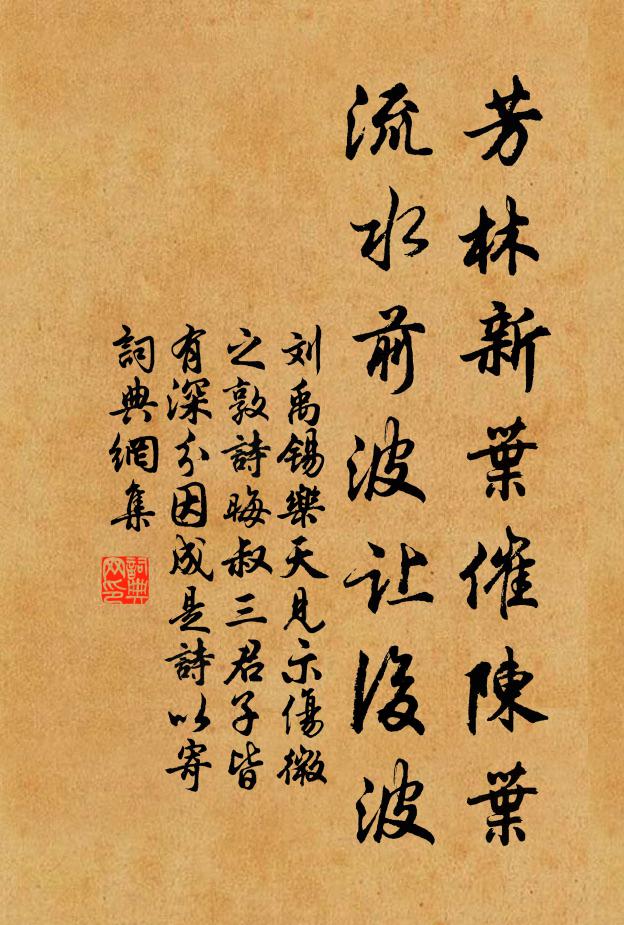 芳林新葉催陳葉
流水前波让後波
刘禹锡樂天見示傷微
之敦詩晦叔三君子皆
有深分因成是詩以寄
詞典網集
詞典
网印